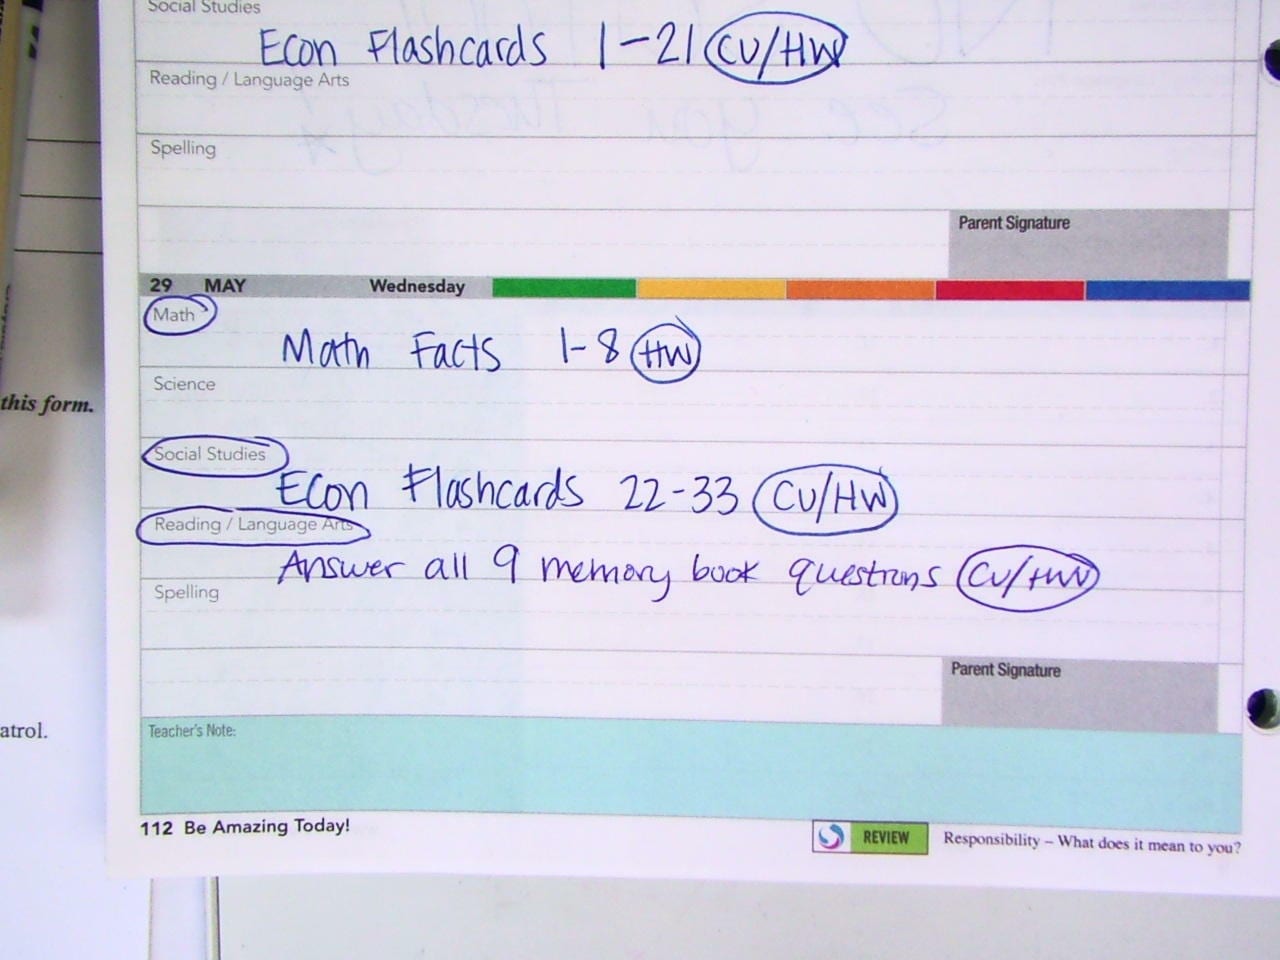 Social Studies
Econ Flashcards 1-21 CV/HW
Reading / Language Arts
See you Tuesday!
Spelling
Parent Signature
29 MAY Wednesday
Math
Math Facts 1-8 HW
Science
this form.
Social Studies
Econ Flashcards 22-33 CV/HW
Reading / Language Arts
Answer all 9 memory book questions CV/HW
Spelling
Parent Signature
atrol.
Teacher's Note:
112 Be Amazing Today!
REVIEW Responsibility – What does it mean to you?